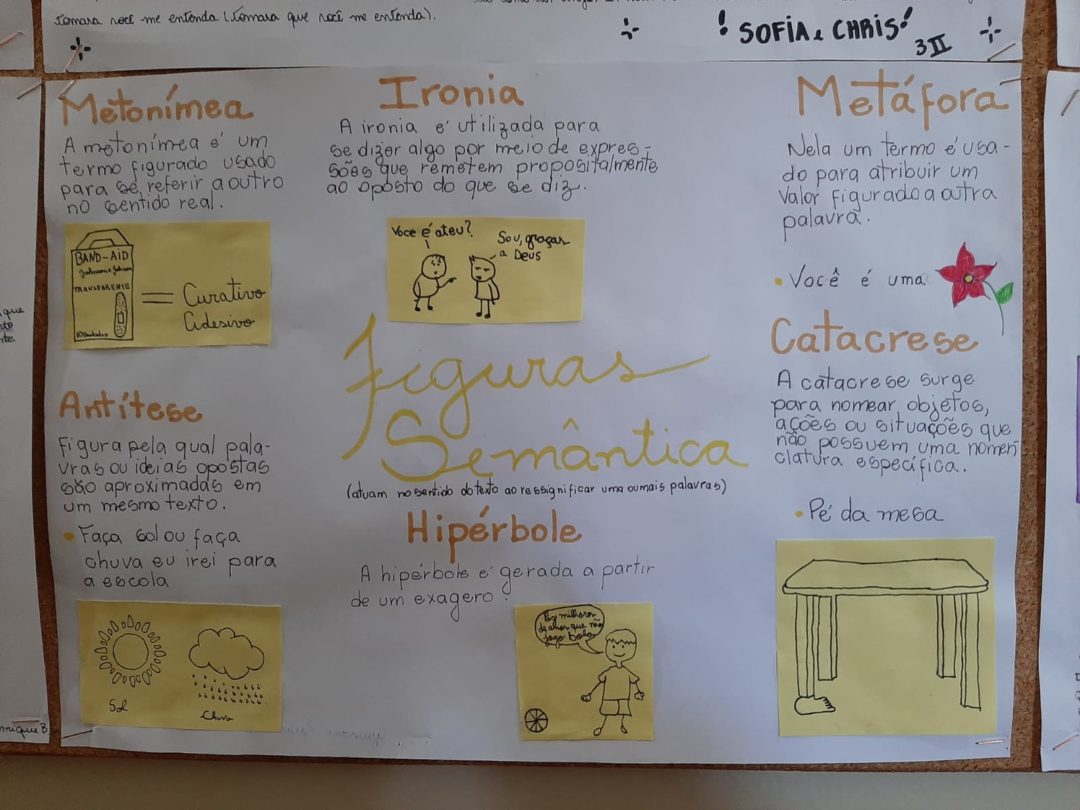 tomara você me entenda (tomara que você me entenda).
! SOFIA e CHRIS!
3II
Metonímea
A metonímea é um
termo figurado usado
para se referir a outro
no sentido real.
BAND-AID
Johnson & Johnson
TRANSPARENTE
= Curativo
Adesivo
Ironia
A ironia é utilizada para
se dizer algo por meio de expres-
sões que remetem propositalmente
ao oposto do que se diz.
Você é ateu?
Sou, graças
a Deus
Metáfora
Nela um termo é usa-
do para atribuir um
valor figurado a outra
palavra.
• Você é uma
Antítese
Figura pela qual pala-
vras ou ideias opostas
são aproximadas em
um mesmo texto.
• Faça sol ou faça
chuva eu irei para
a escola
Sol
Chuva
Figuras
Semântica
(atuam no sentido do texto ao ressignificar uma ou mais palavras)
Hipérbole
A hipérbole é gerada a partir
de um exagero.
Faz milhares
de anos que não
jogo bola
Catacrese
A catacrese surge
para nomear objetos,
ações ou situações que
não possuem uma nomen
clatura específica.
• Pé da mesa